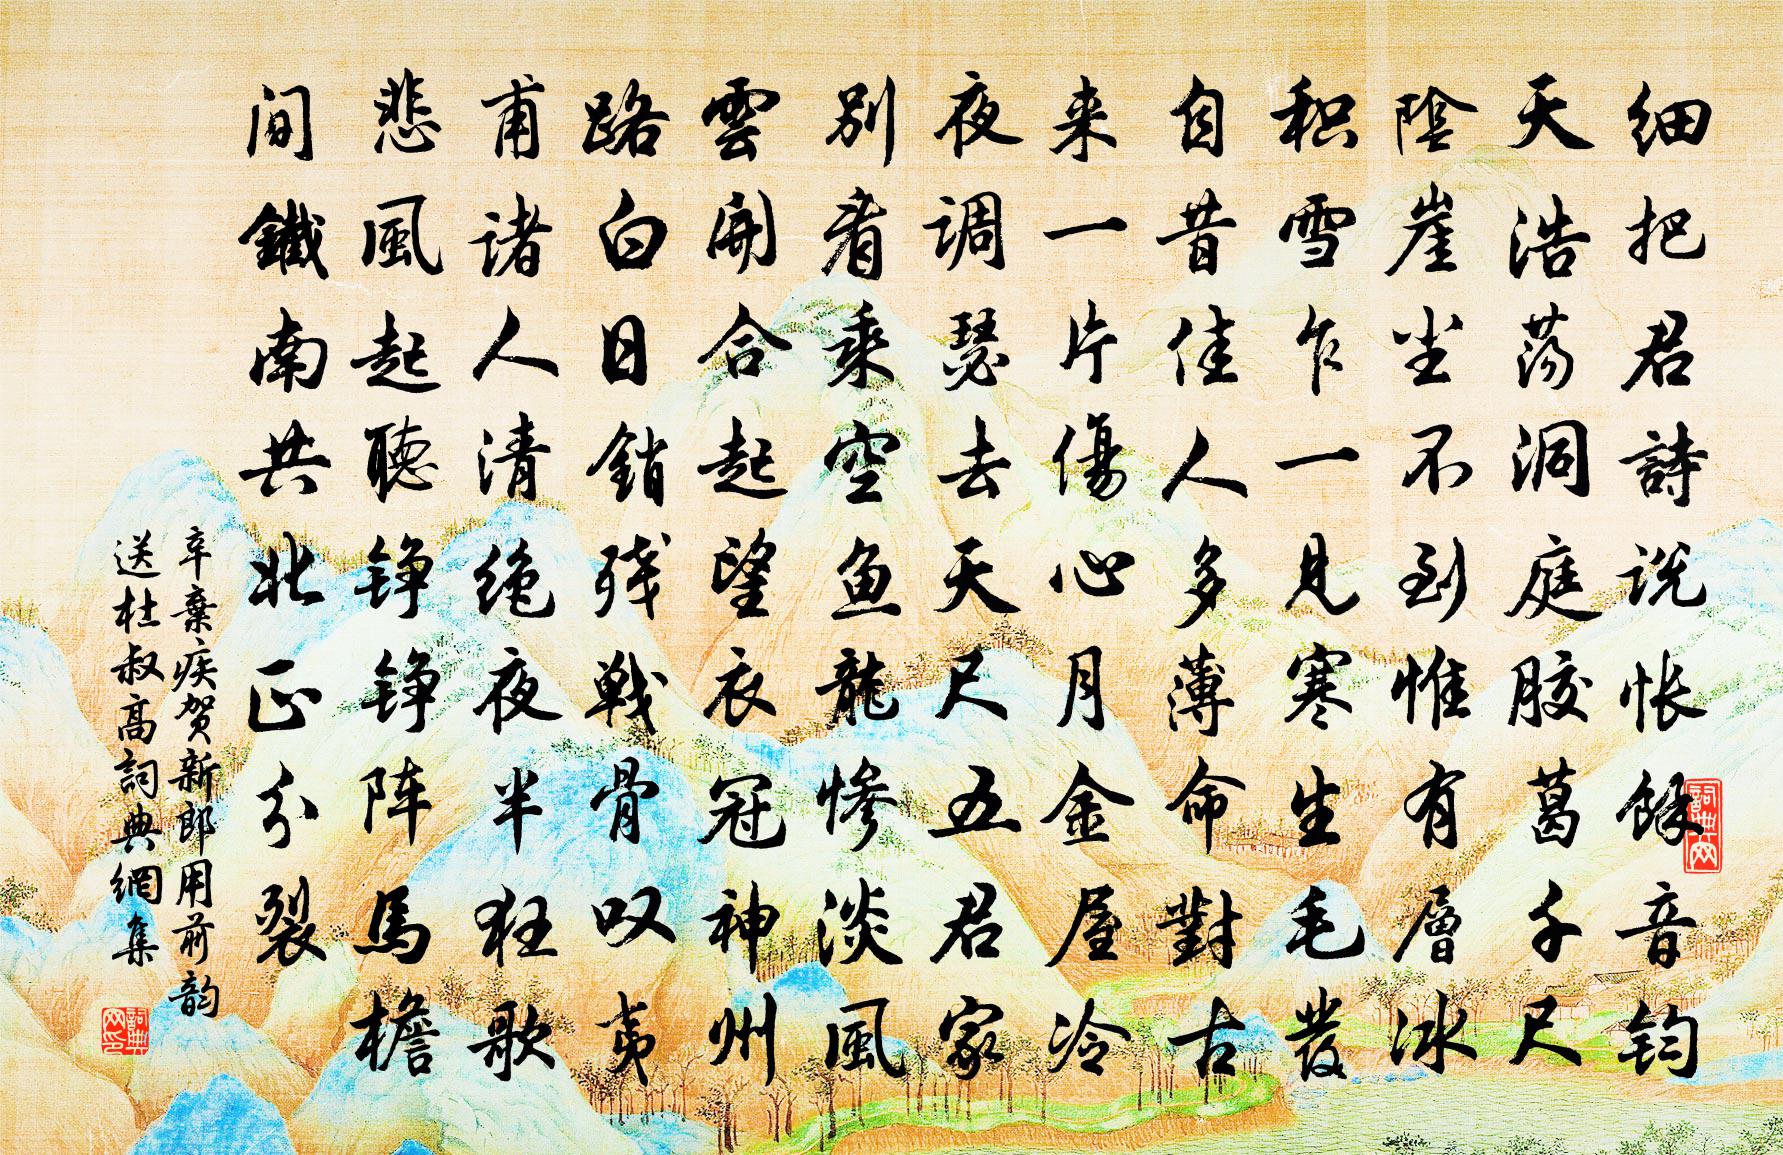 细把君詩说怅餘音钧
天浩荡洞庭胶葛千尺
陰崖尘不到惟有層冰
积雪乍一見寒生毛發
自昔佳人多薄命對古
来一片傷心月金屋冷
夜调瑟去天尺五君家
别看乘空鱼龍惨淡風
雲開合起望衣冠神州
路白日銷残戦骨叹夷
甫诸人清绝夜半狂歌
悲風起聽铮铮阵馬檐
间鐵南共北正分裂
辛棄疾贺新郎用前韵
送杜叔高詞典網集
詞典网
詞典网印